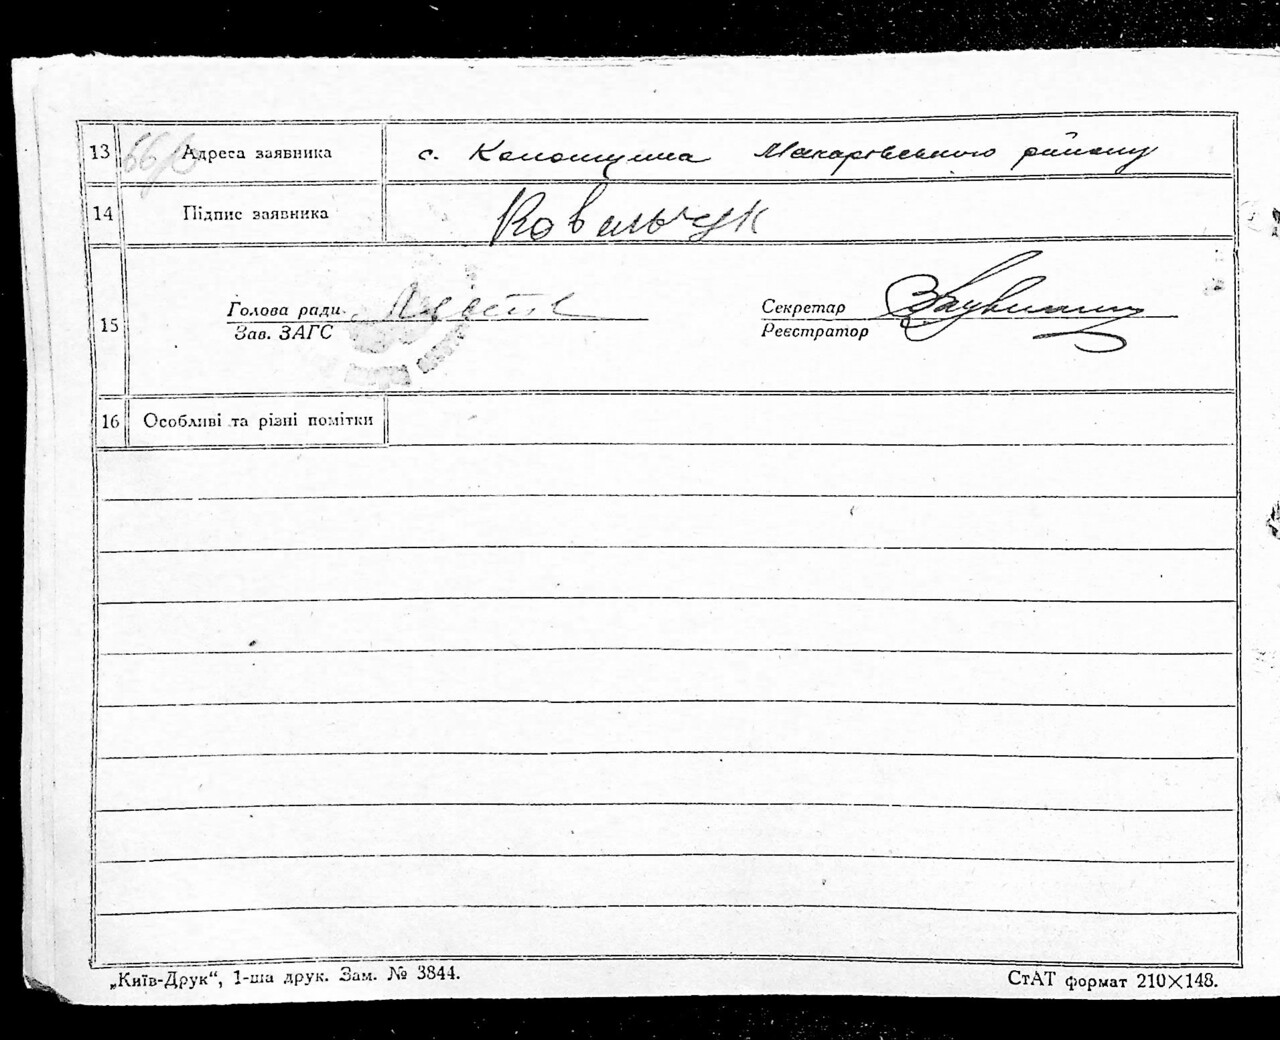 13 Адреса заявника с. Колонщина Макарівського району
14 Підпис заявника Ковальчук
Голова ради
Секретар
15
Зав. ЗАГС
Реєстратор
16 Особливі та різні помітки
„Київ-Друк“, 1-ша друк. Зам. № 3844.
СтАТ формат 210×148.